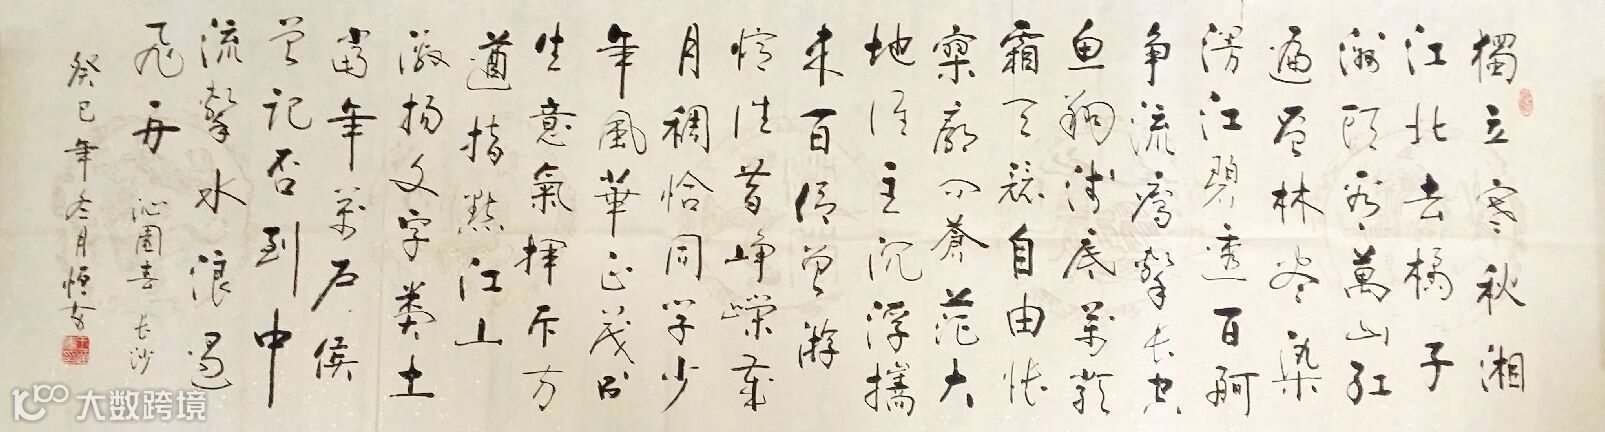 獨立寒秋湘
江北去橘子
洲頭看萬山红
遍层林尽染
漫江碧透百舸
争流鹰擊长空
鱼翔浅底萬類
霜天競自由怅
寥廓问蒼茫大
地谁主沉浮攜
来百侣曾游
憶往昔崢嶸歲
月稠恰同学少
年風華正茂书
生意氣揮斥方
遒指點江山
激扬文字粪土
當年萬户侯
曾记否到中
流擊水浪遏
飛舟
沁園春 长沙
癸巳年冬月恒
大数跨境